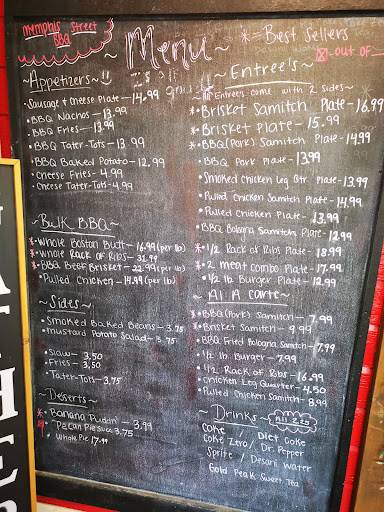 Memphis Street
BBQ
~ Menu ~
* = Best Sellers
☒ - out of
~Appetizers~
• Sausage + Cheese Plate — 14.99
• BBQ Nachos — 13.99
• BBQ Fries — 13.99
• BBQ Tater-Tots — 13.99
• BBQ Baked Potato — 12.99
• Cheese Fries — 4.99
• Cheese Tater-Tots — 4.99
~Bulk BBQ~
* • Whole Boston Butt — 16.99 (per lb)
* • Whole Rack of Ribs — 31.99
* • BBQ Beef Brisket — 22.99 (per lb)
• Pulled Chicken — 14.99 (per lb)
~Sides~
• Smoked Baked Beans — 3.75
• Mustard Potato Salad — 3.75
• Slaw — 3.50
• Fries — 3.50
• Tater-Tots — 3.75
~Desserts~
* • Banana Puddin' — 3.99
• Pecan Pie Slice 3.75
• Whole Pie 17.99
~Entree's~
~All Entrees come with 2 sides~
* Brisket Samitch Plate — 16.99
* Brisket Plate — 15.99
* BBQ (Pork) Samitch Plate — 14.99
• BBQ Pork Plate — 13.99
• Smoked Chicken Leg Qtr Plate — 13.99
• Pulled Chicken Samitch Plate — 14.99
• Pulled Chicken Plate — 13.99
• BBQ Bologna Samitch Plate — 12.99
* • 1/2 Rack of Ribs Plate — 18.99
* • 2 meat combo Plate — 17.99
• 1/2 lb. Burger Plate — 12.99
~ Al A Carte ~
* • BBQ (Pork) Samitch — 7.99
* • Brisket Samitch — 9.99
• BBQ Fried Bologna Samitch — 7.99
• 1/2 lb. Burger — 7.99
• 1/2 Rack of Ribs — 16.99
• Chicken Leg Quarter — 4.50
• Pulled Chicken Samitch — 8.99
~ Drinks ~
Coke Diet Coke
Coke Zero / Dr. Pepper
Sprite / Desani Water
Gold Peak Sweet Tea